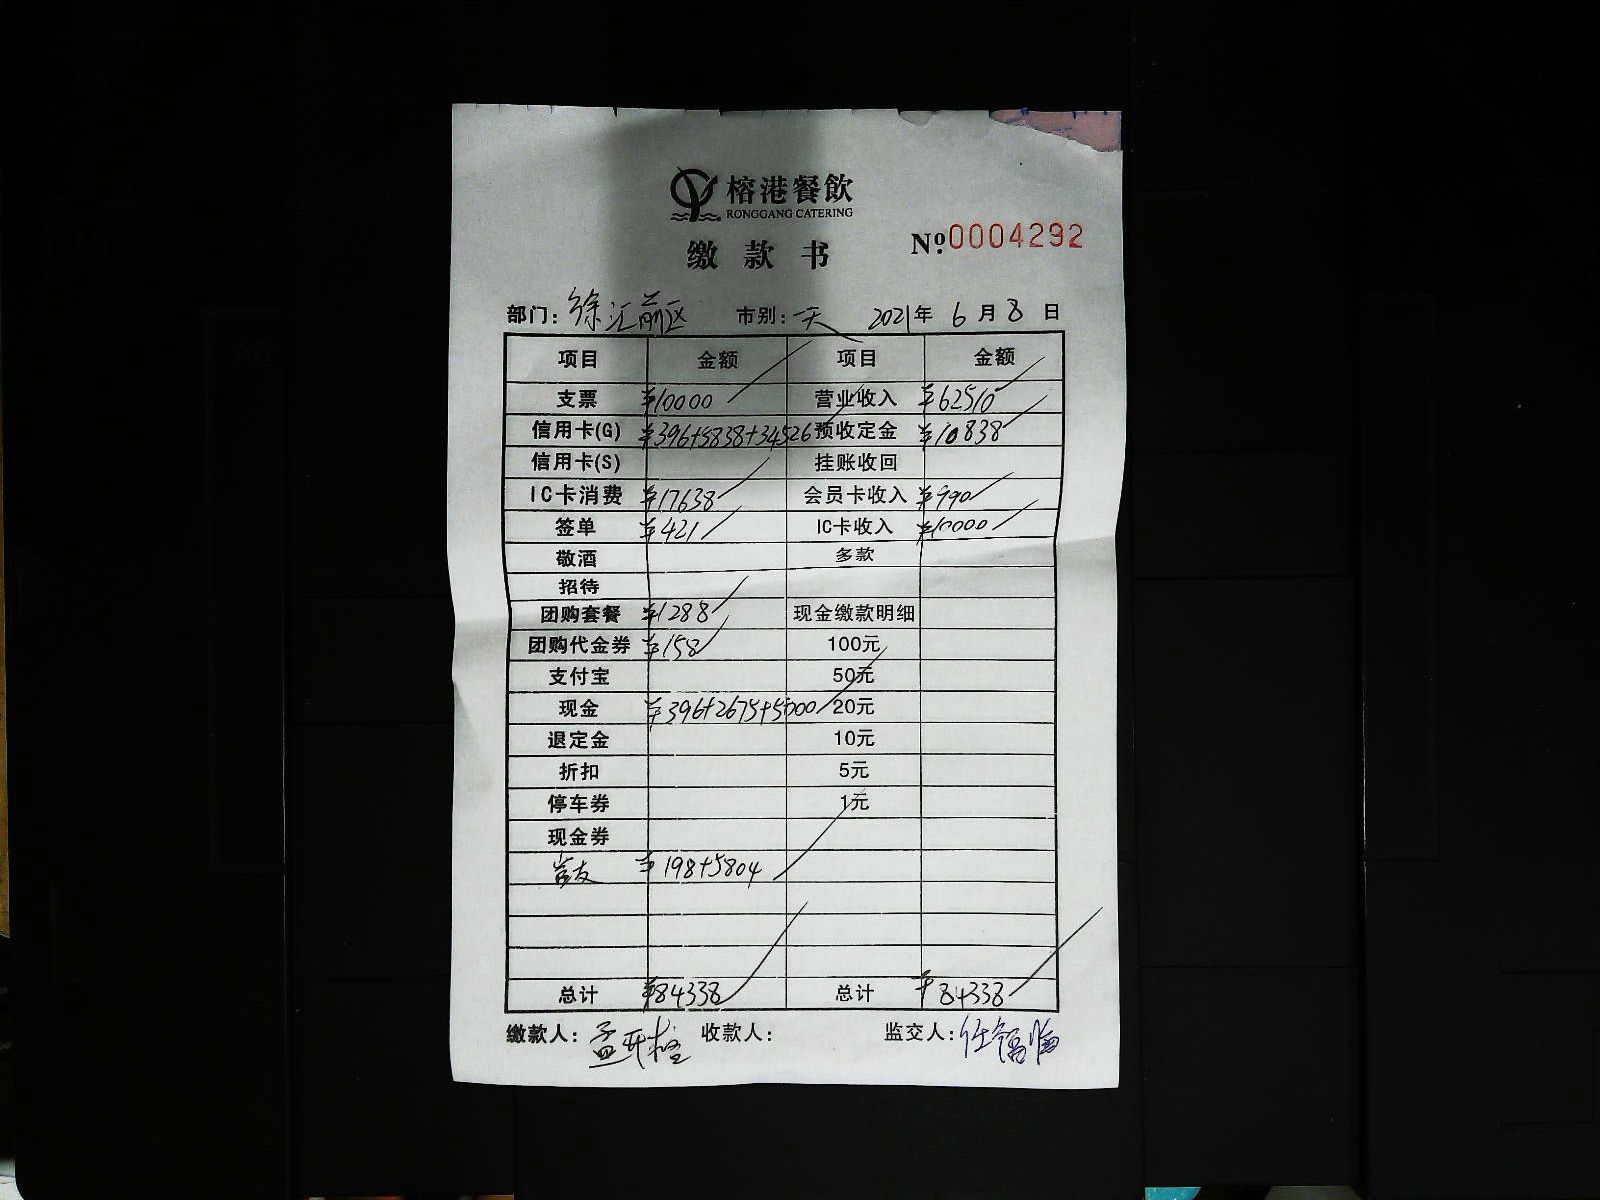 榕港餐飲
RONGGANG CATERING
缴款书 №0004292
部门: 徐汇前区 市别: 一天 2021年 6月 8日
项目 金额 项目 金额
支票 ¥10000 营业收入 ¥62510
信用卡(G) ¥396+5838+34526 预收定金 ¥10838
信用卡(S) 挂账收回
IC卡消费 ¥17638 会员卡收入 ¥990
签单 ¥421 IC卡收入 ¥10000
敬酒 多款
招待
团购套餐 ¥1288 现金缴款明细
团购代金券 ¥158 100元
支付宝 50元
现金 ¥396+2675+5000 20元
退定金 10元
折扣 5元
停车券 1元
现金券
¥198+5804
总计 ¥84338 总计 ¥84338
缴款人: 收款人: 监交人: